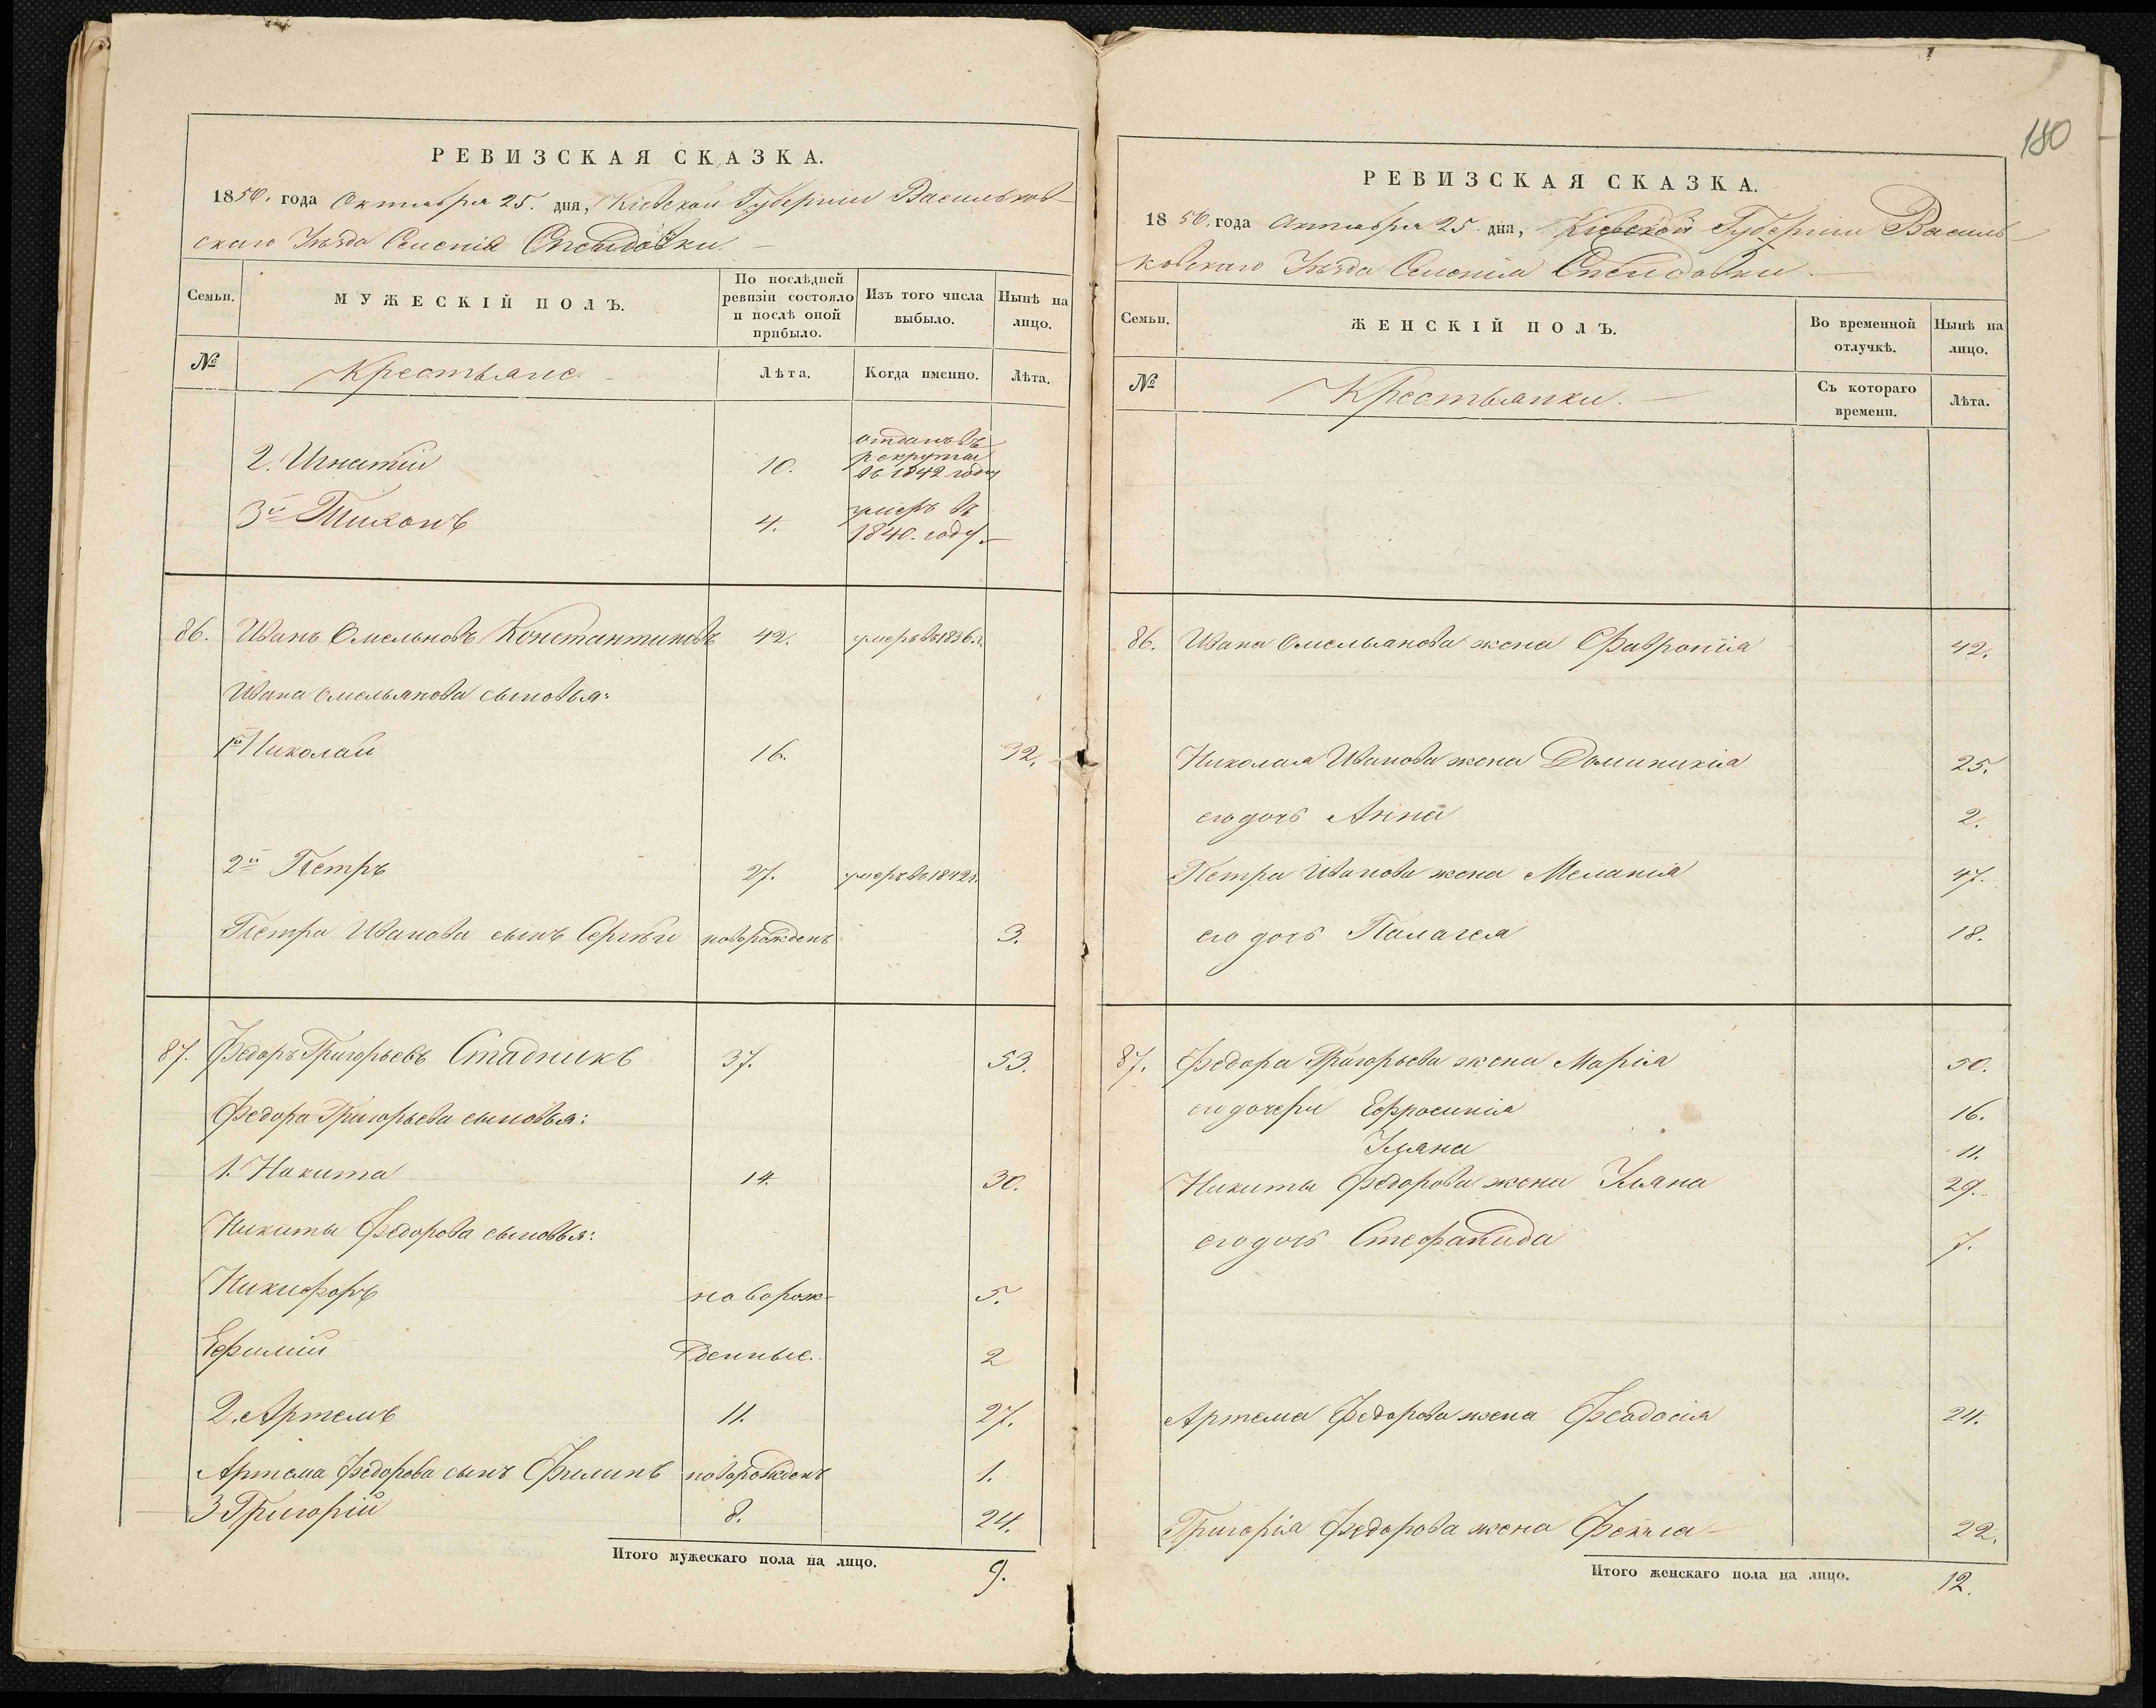 РЕВИЗСКАЯ СКАЗКА.
1850. года Октября 25. дня, Кіевской Губерніи Васильков-
скаго Уѣзда Селенія
Семьи.
МУЖЕСКІЙ ПОЛЪ.
По послѣдней ревизіи состояло и послѣ оной прибыло.
Изъ того числа выбыло.
Нынѣ на лицо.
№
Крестьяне
Лѣта.
Когда именно.
Лѣта.
2. Игнатій 10. отданъ въ
рекруты
въ 1842 году
3й Тихонъ 4. умеръ въ
1840. году.
86. Иванъ Омельновъ Константиновъ 42. умеръ въ 1836 г.
Ивана Омельянова сыновья:
1й Николай 16. 32.
2й Петръ 27. умеръ въ 1842 г.
Петра Иванова сынъ Сергѣй новорожденъ 3.
87. Федоръ Григорьевъ Стадникъ 37. 53.
Федора Григорьева сыновья:
1. Никита 14. 30.
Никиты Федорова сыновья:
Никифоръ новорож- 5.
Ефимій денные. 2
2. Артемъ 11. 27.
Артема Федорова сынъ Филипъ новорожденъ 1.
3 Григорій 8. 24.
Итого мужескаго пола на лицо. 9.
180
РЕВИЗСКАЯ СКАЗКА.
1850. года Октября 25. дня, Кіевской Губерніи Василь-
ковскаго Уѣзда Селенія
Семьи.
ЖЕНСКІЙ ПОЛЪ.
Во временной отлучкѣ.
Нынѣ на лицо.
№
Крестьянки.
Съ котораго времени.
Лѣта.
86. Ивана Омельянова жена Февронія 42.
Николая Иванова жена Доминикія 25.
его дочь Анна 2.
Петра Иванова жена Меланія 47.
его дочь Палагея 18.
87. Федора Григорьева жена Марія 50.
его дочери Ефросинія 16.
Уляна 11.
Никиты Федорова жена Уляна 29.
его дочь Стефанида 7.
Артема Федорова жена Феодосія 24.
Григорія Федорова жена Фекла 22.
Итого женскаго пола на лицо. 12.